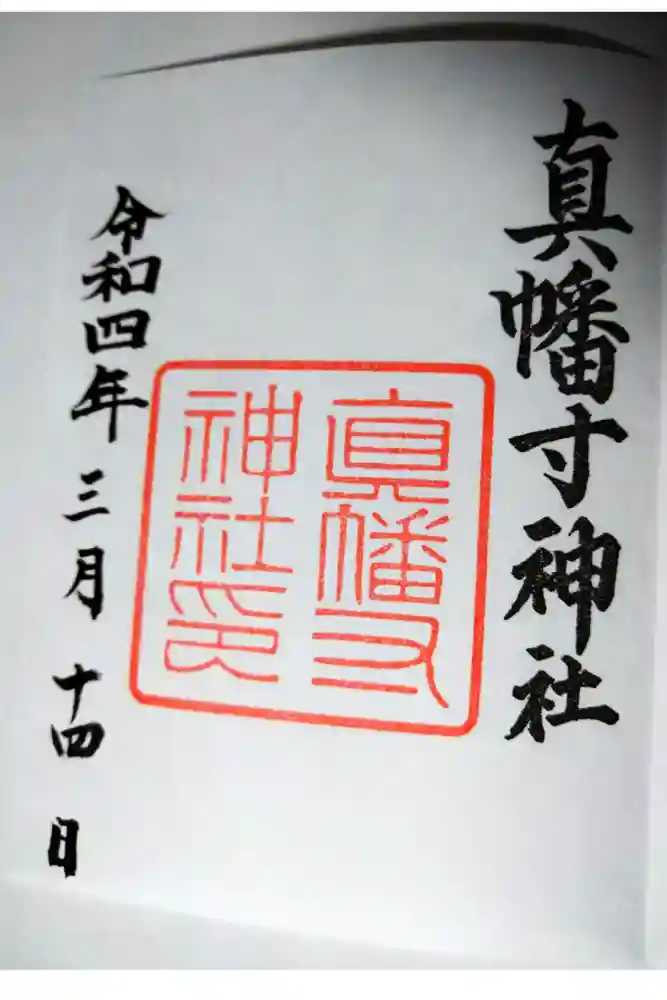 真幡寸神社
真幡寸
神社印
令和四年 三月 十四 日